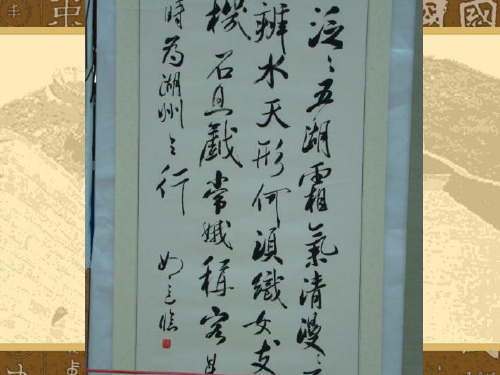 國
泛〻五湖霜氣清漫〻不
辨水天形何須織女支
機石且戲常娥稱客
時為湖州之行